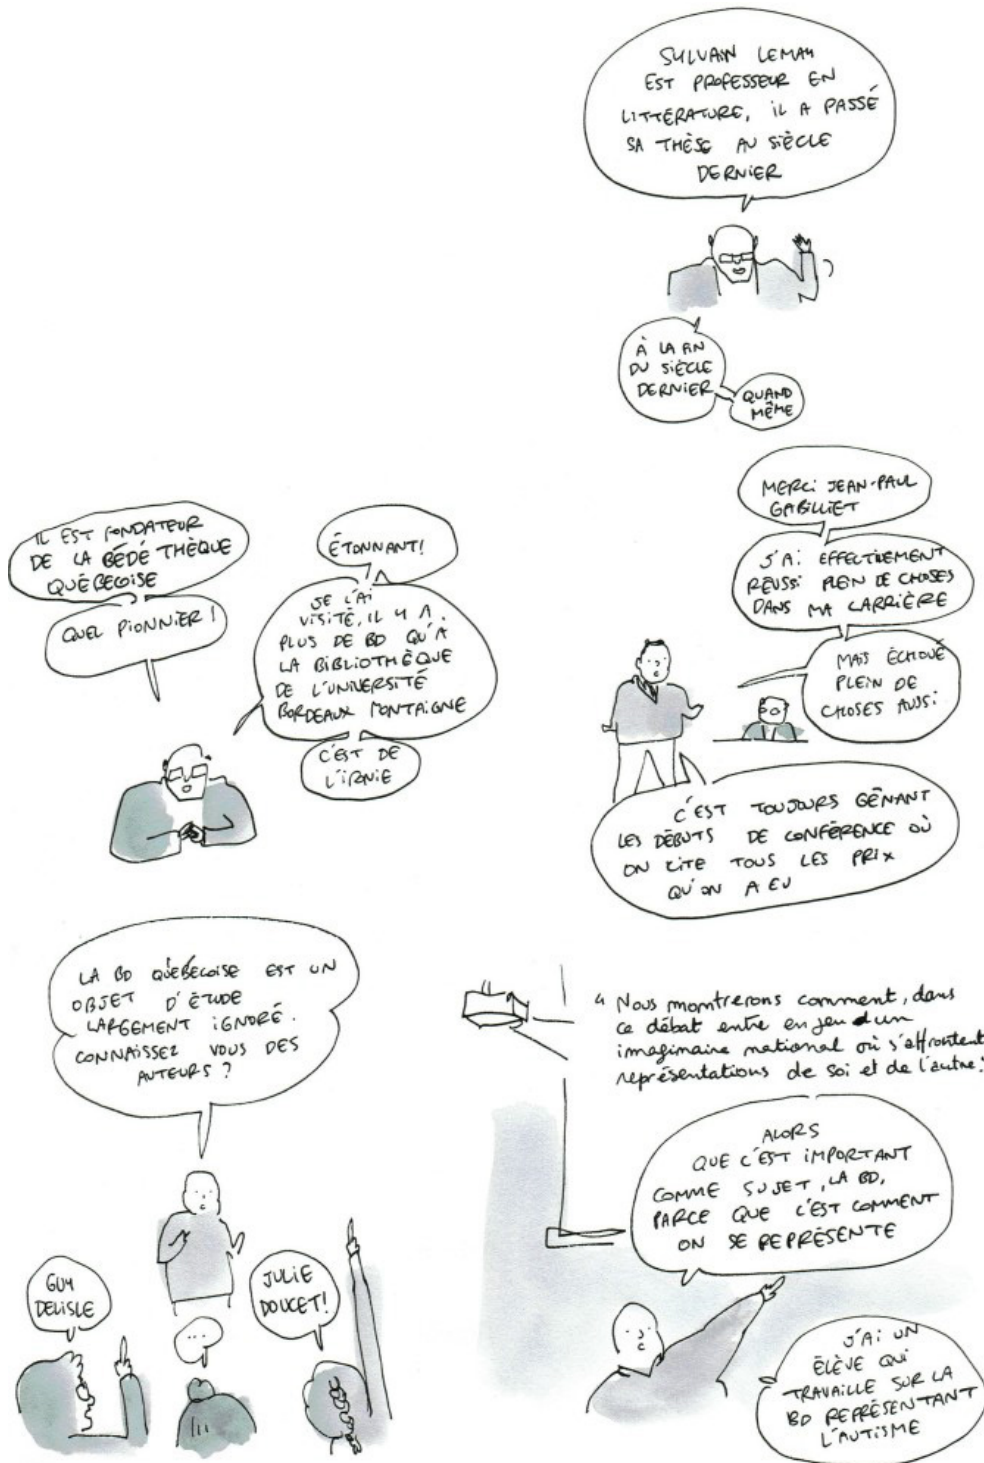 SYLVAIN LEMAY
EST PROFESSEUR EN
LITTÉRATURE, IL A PASSÉ
SA THÈSE AU SIÈCLE
DERNIER
À LA FIN
DU SIÈCLE
DERNIER
QUAND
MÊME
IL EST FONDATEUR
DE LA BÉDÉTHÈQUE
QUÉBECOISE
QUEL PIONNIER !
ÉTONNANT!
JE L'AI
VISITÉ, IL Y A
PLUS DE BD QU'À
LA BIBLIOTHÈQUE
DE L'UNIVERSITÉ
BORDEAUX MONTAIGNE
C'EST DE
L'IRNIE
MERCI JEAN-PAUL
GABILLIET
J'AI EFFECTIVEMENT
RÉUSSI PLEIN DE CHOSES
DANS MA CARRIÈRE
MAIS ÉCHOUÉ
PLEIN DE
CHOSES AUSSI
C'EST TOUJOURS GÊNANT
LES DÉBUTS DE CONFÉRENCE OÙ
ON CITE TOUS LES PRIX
QU'ON A EU
LA BD QUÉBECOISE EST UN
OBJET D'ÉTUDE
LARGEMENT IGNORÉ.
CONNAISSEZ VOUS DES
AUTEURS ?
GUY
DELISLE
...
JULIE
DOUCET!
" Nous montrerons comment, dans
ce débat entre en jeu d'un
imaginaire national où s'affrontent
représentations de soi et de l'autre."
ALORS
QUE C'EST IMPORTANT
COMME SUJET, LA BD,
PARCE QUE C'EST COMMENT
ON SE REPRÉSENTE
J'AI UN
ÉLÈVE QUI
TRAVAILLE SUR LA
BD REPRÉSENTANT
L'AUTISME